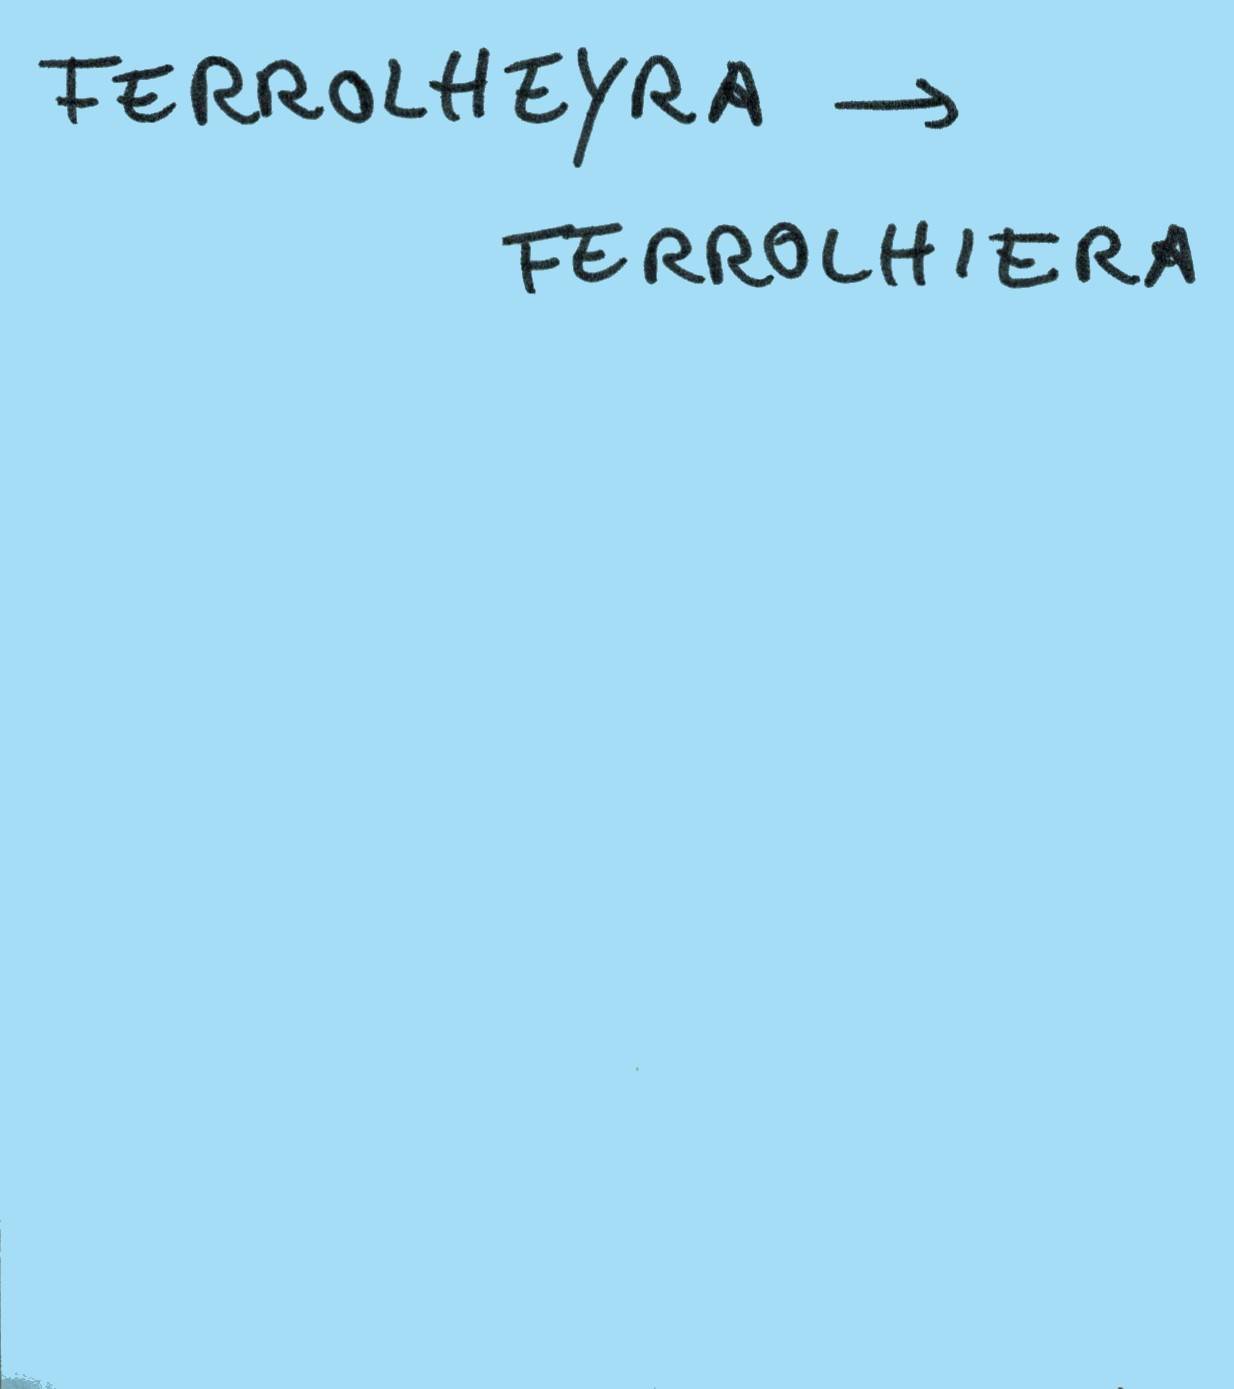 FERROLHEYRA →
FERROLHIERA